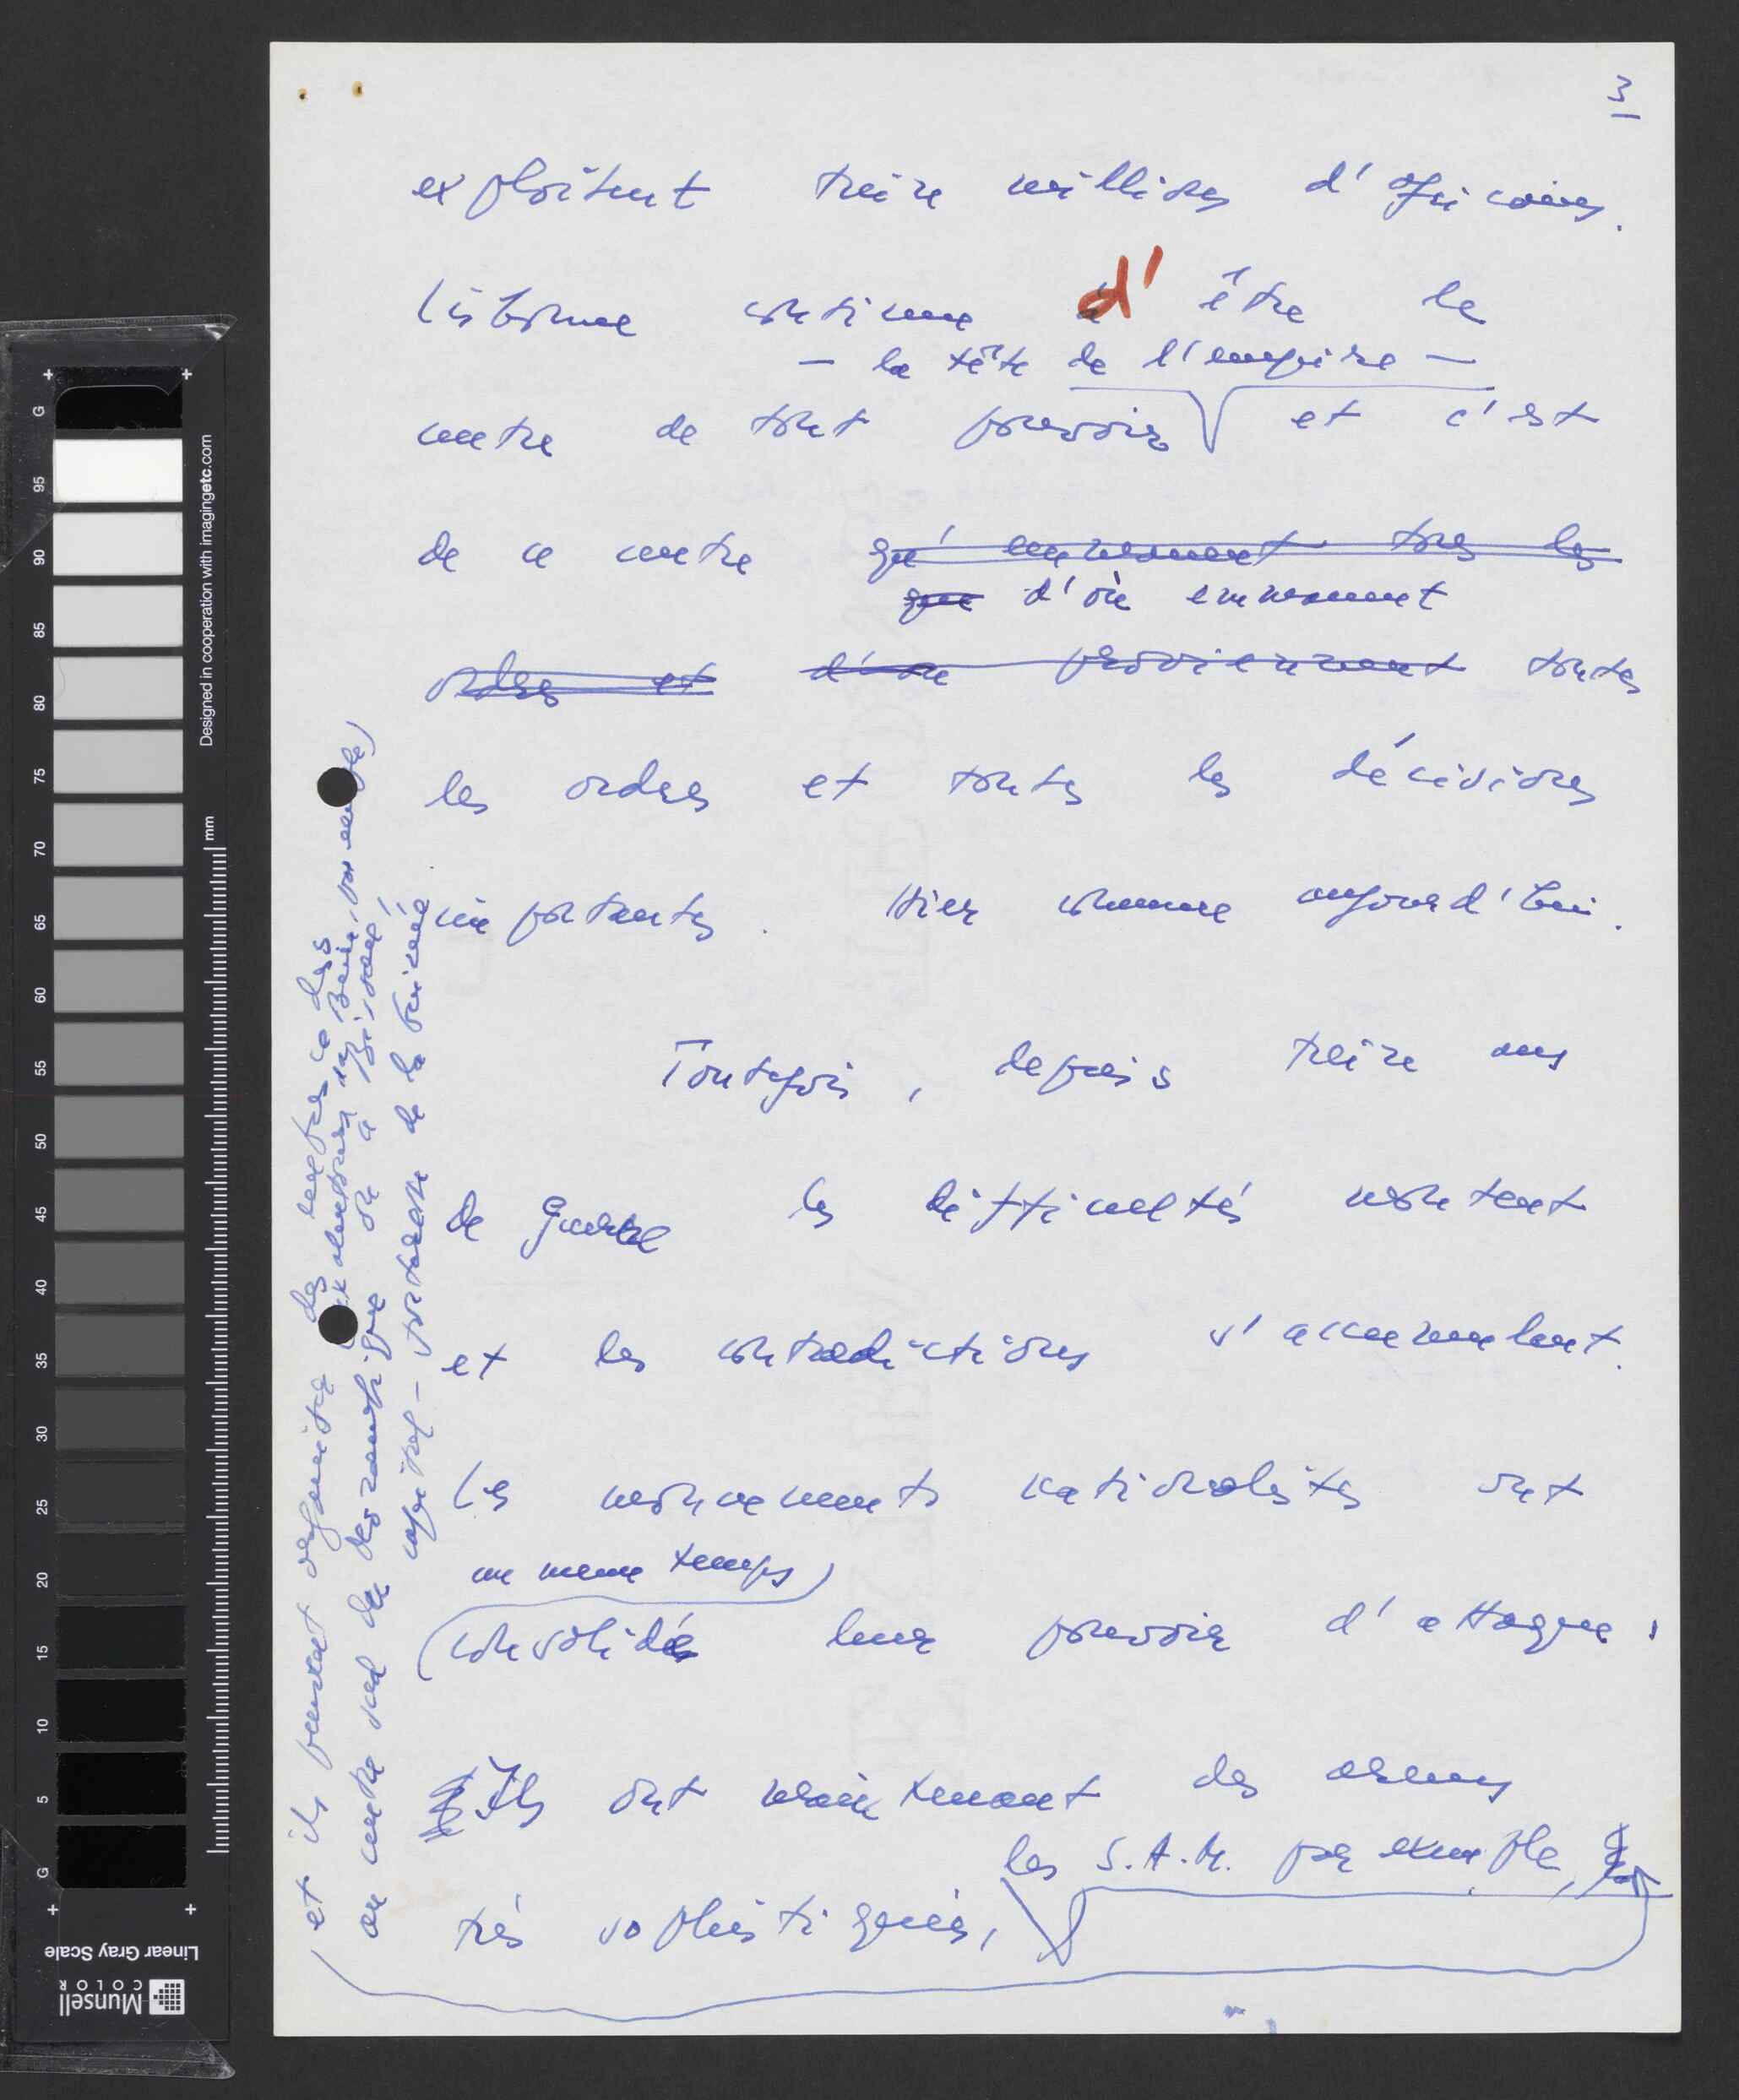 3
exploitent treize millions d'africains.
Lisbonne continue d' être le
— la tête de l'empire —
centre de tout pouvoir et c'est
de ce centre qu' emmenent tous les
que d'où emmenent
ordres et d'où proviennent toutes
les ordres et toutes les décisions
importantes. Hier comme aujourd'hui.
Toutefois, depuis treize ans
de guerre les difficultés montent
et les contradictions s'accumulent.
Les mouvements nationalistes ont
en meme temps
consolidé leur pouvoir d'attaque.
Ils ont maintenant des armes
les S.A.M. par exemple,
très sophistiqués,
et ils peuvent des des
au centre sud du Mozambique ou à Bissau,
capital de la Guinée
G 95 90 85 80 75 70 65 60 55 50 45 40 35 30 25 20 15 10 5 G
mm
Designed in cooperation with imagingetc.com
Linear Gray Scale
Munsell
COLOR